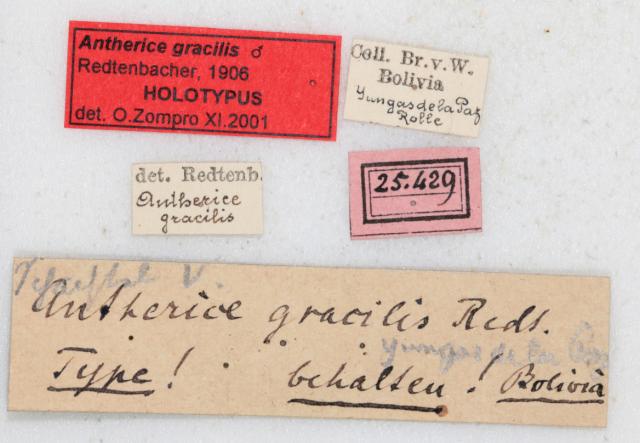 Antherice gracilis ♂
Redtenbacher, 1906
HOLOTYPUS
det. O.Zompro XI.2001
Coll. Br. v. W.
Bolivia
Yungas de la Paz
Rolle
det. Redtenb.
Antherice
gracilis
25.429
V.
Antherice gracilis Redt.
Yungas de la Paz
Type! behalten! Bolivia